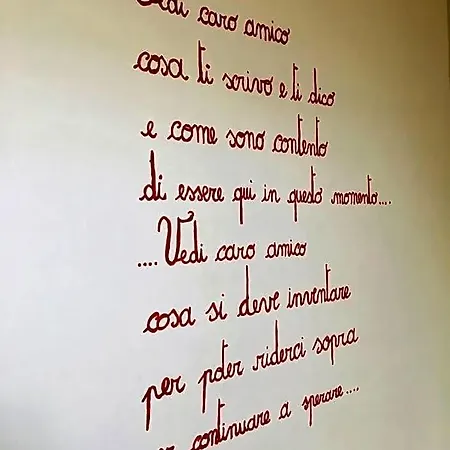 Vedi caro amico
cosa ti scrivo e ti dico
e come sono contento
di essere qui in questo momento....
....Vedi caro amico
cosa si deve inventare
per poter riderci sopra
per continuare a sperare....